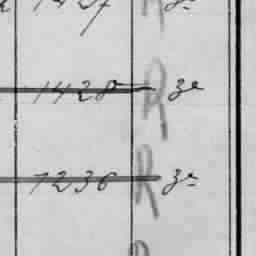 1427 R 3e
1428 R 3e
1236 R 3e
R